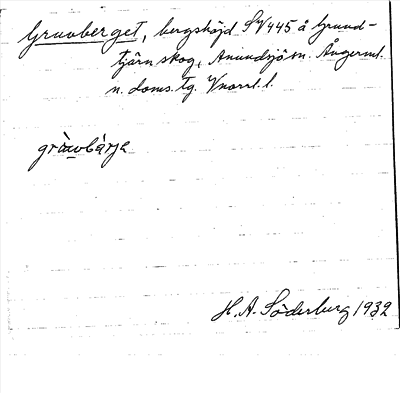 Gruvberget, bergshöjd SV 445 å Grund-
tjärn skog, Anundsjö sn. Ångerml.
n. doms. tg. Vnorrl. l.
gràuvbàrje
H. A. Söderberg 1932